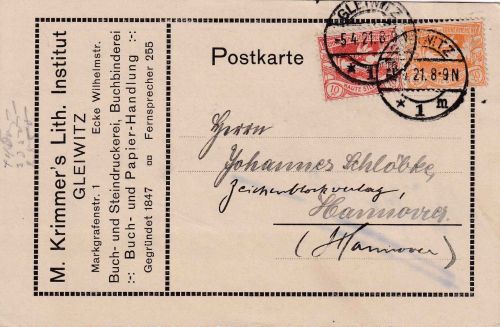 M. Krimmer's Lith. Institut
GLEIWITZ
Markgrafenstr. 1 Ecke Wilhelmstr.
Buch- und Steindruckerei, Buchbinderei
Buch- und Papier-Handlung
Gegründet 1847 Fernsprecher 255
Postkarte
GLEIWITZ
-5.4.21.8-
* 1
21.8-9N
* 1 m
10
HAUTE
Herrn
Johannes Schlöbke,
Zeichenblockverlag,
Hannover
(Hannover)